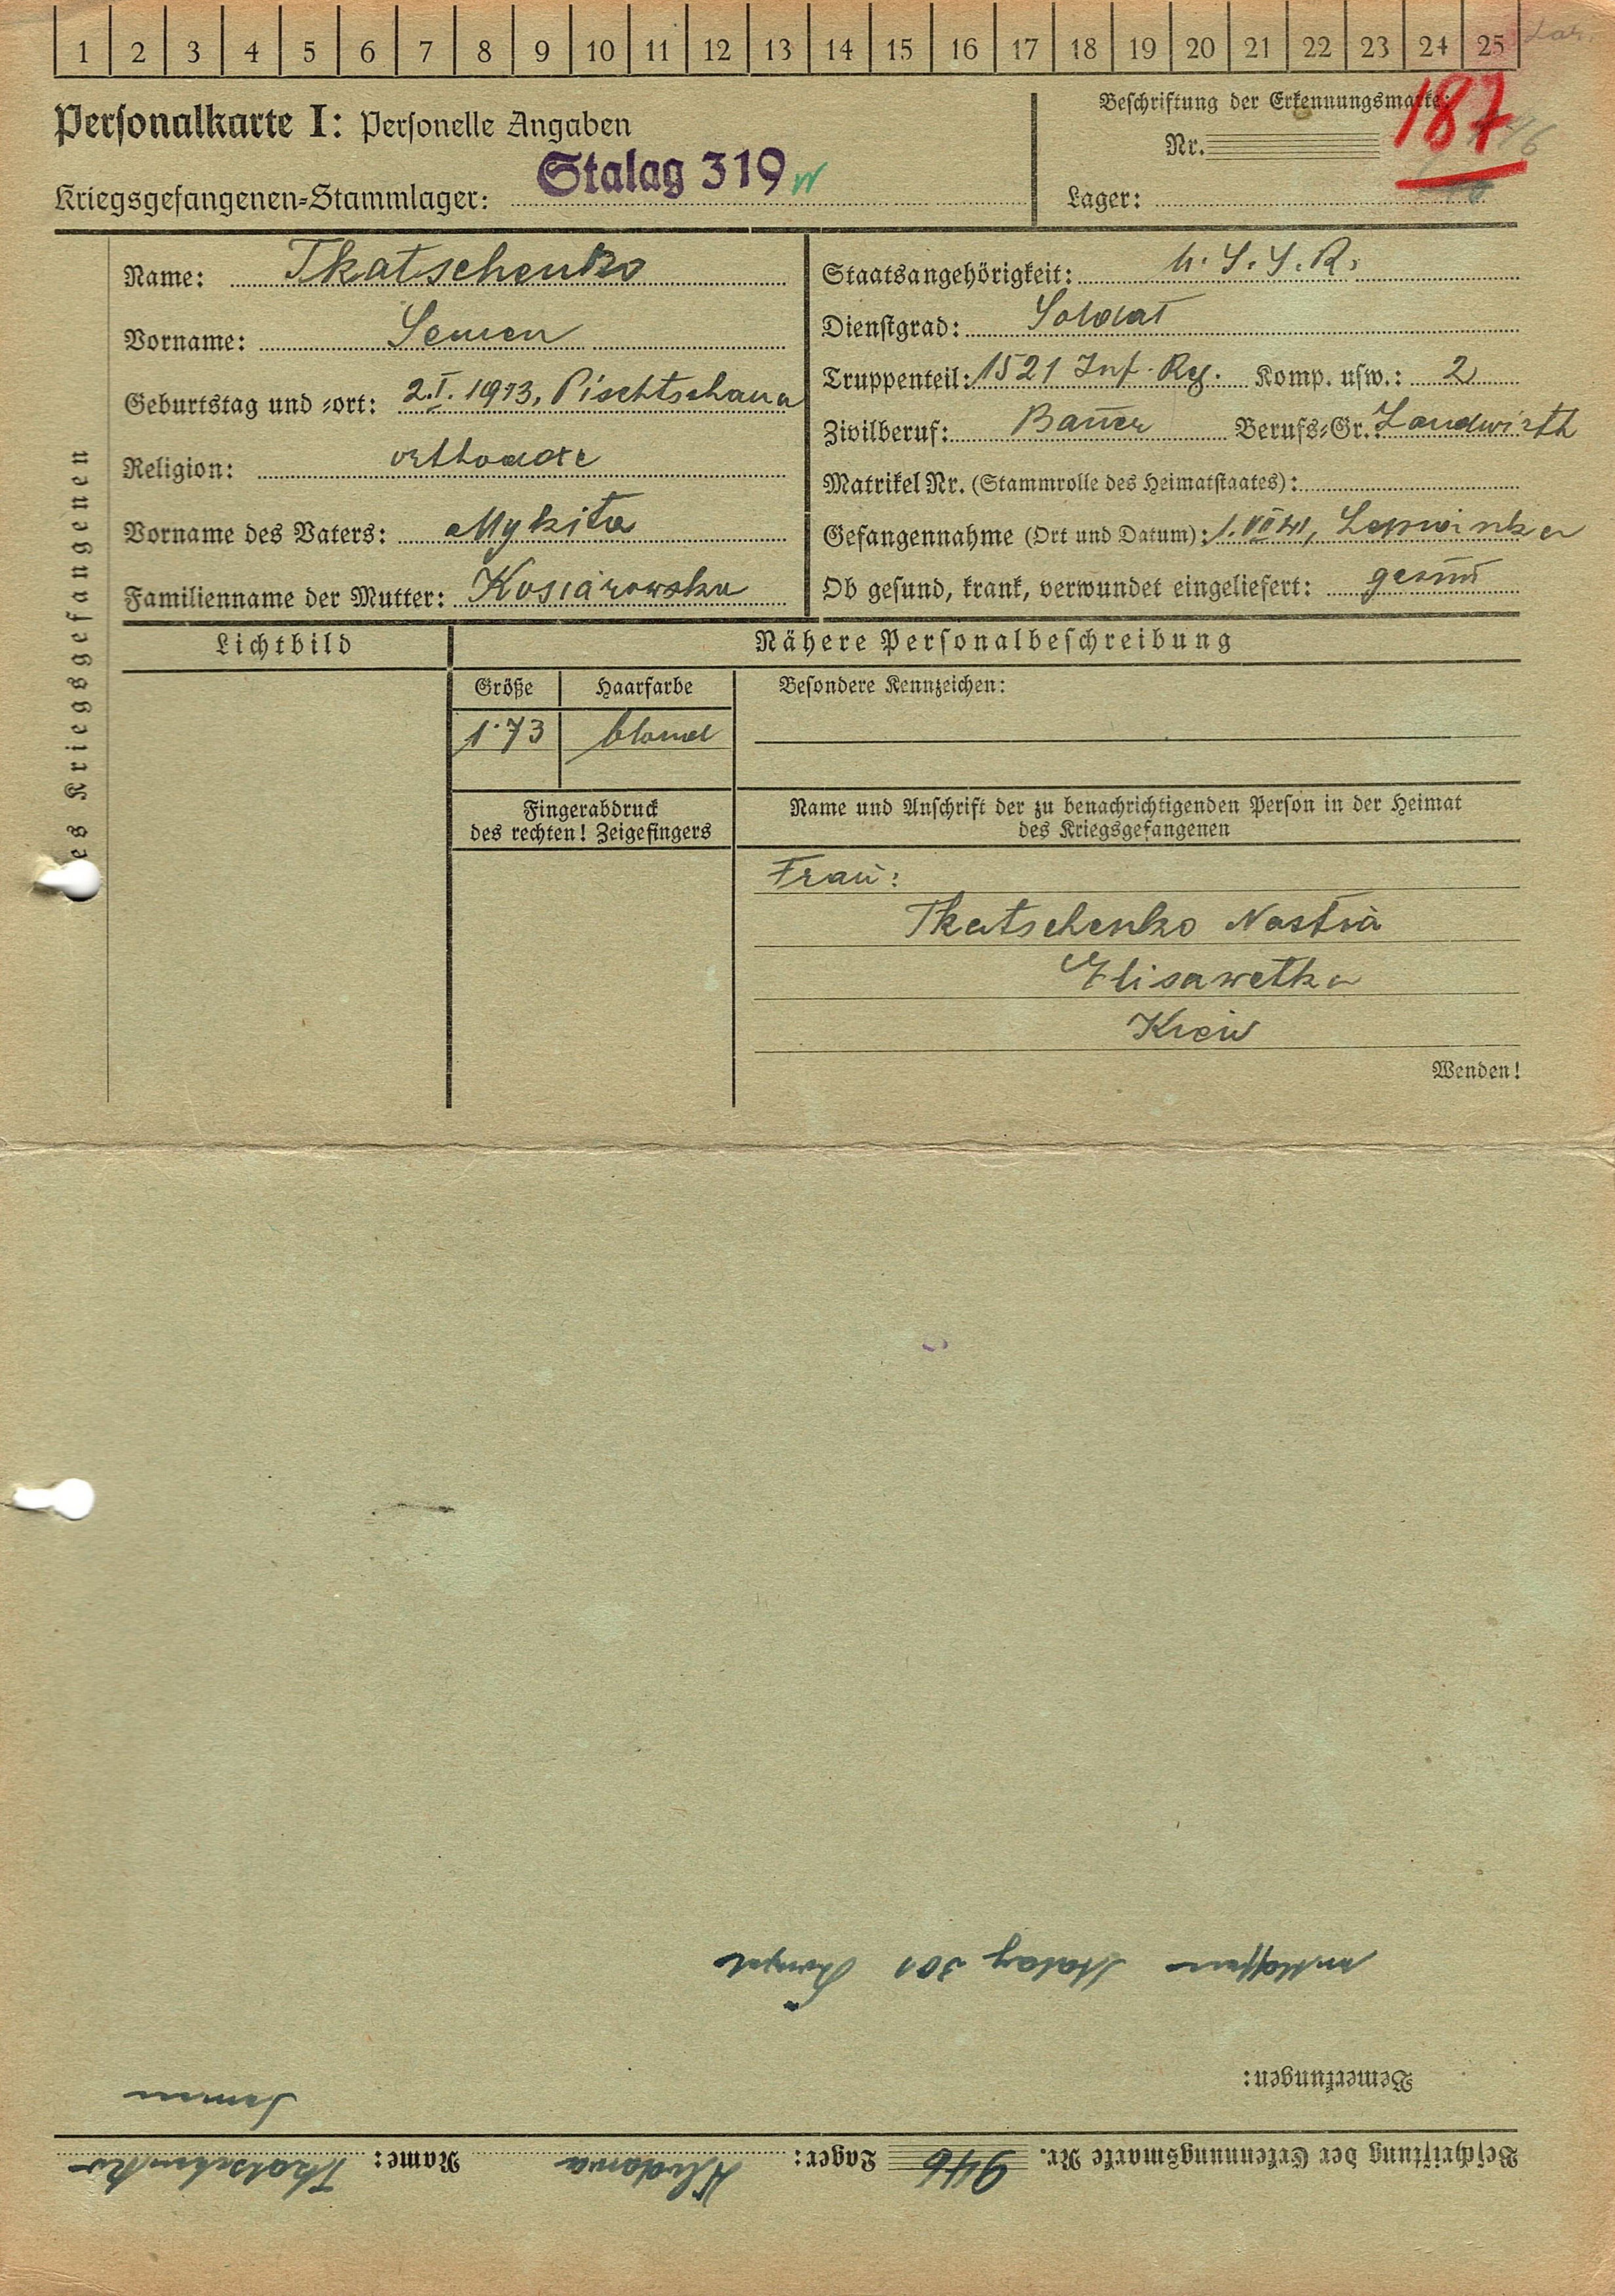 1 2 3 4 5 6 7 8 9 10 11 12 13 14 15 16 17 18 19 20 21 22 23 24 25
Personalkarte I: Personelle Angaben
Beschriftung der Erkennungsmarke:
187
Nr.
Kriegsgefangenen-Stammlager: Stalag 319
Lager:
des Kriegsgefangenen
Name: Tkatschenko
Vorname: Semen
Geburtstag und -ort: 2.I.1913, Pischtschana
Religion: orthodox
Vorname des Vaters: Mykita
Familienname der Mutter: Kosiarowska
Staatsangehörigkeit: U.S.S.R.
Dienstgrad: Soldat
Truppenteil: 1521 Inf. Rg. Komp. usw.: 2
Zivilberuf: Bauer Berufs-Gr.: Landwirth
Matrikel Nr. (Stammrolle des Heimatstaates):
Gefangennahme (Ort und Datum): 1.VII 41,
Ob gesund, krank, verwundet eingeliefert: gesund
Lichtbild
Nähere Personalbeschreibung
Größe Haarfarbe Besondere Kennzeichen:
1.73 blond
Fingerabdruck
des rechten! Zeigefingers
Name und Anschrift der zu benachrichtigenden Person in der Heimat
des Kriegsgefangenen
Frau:
Tkatschenko Nastia
Elisawetka
Kiew
Wenden!
Beschriftung der Erkennungsmarke Nr. 946 Lager: Name: Tkatschenko
Semen
Bemerkungen:
entlassen Stalag 301